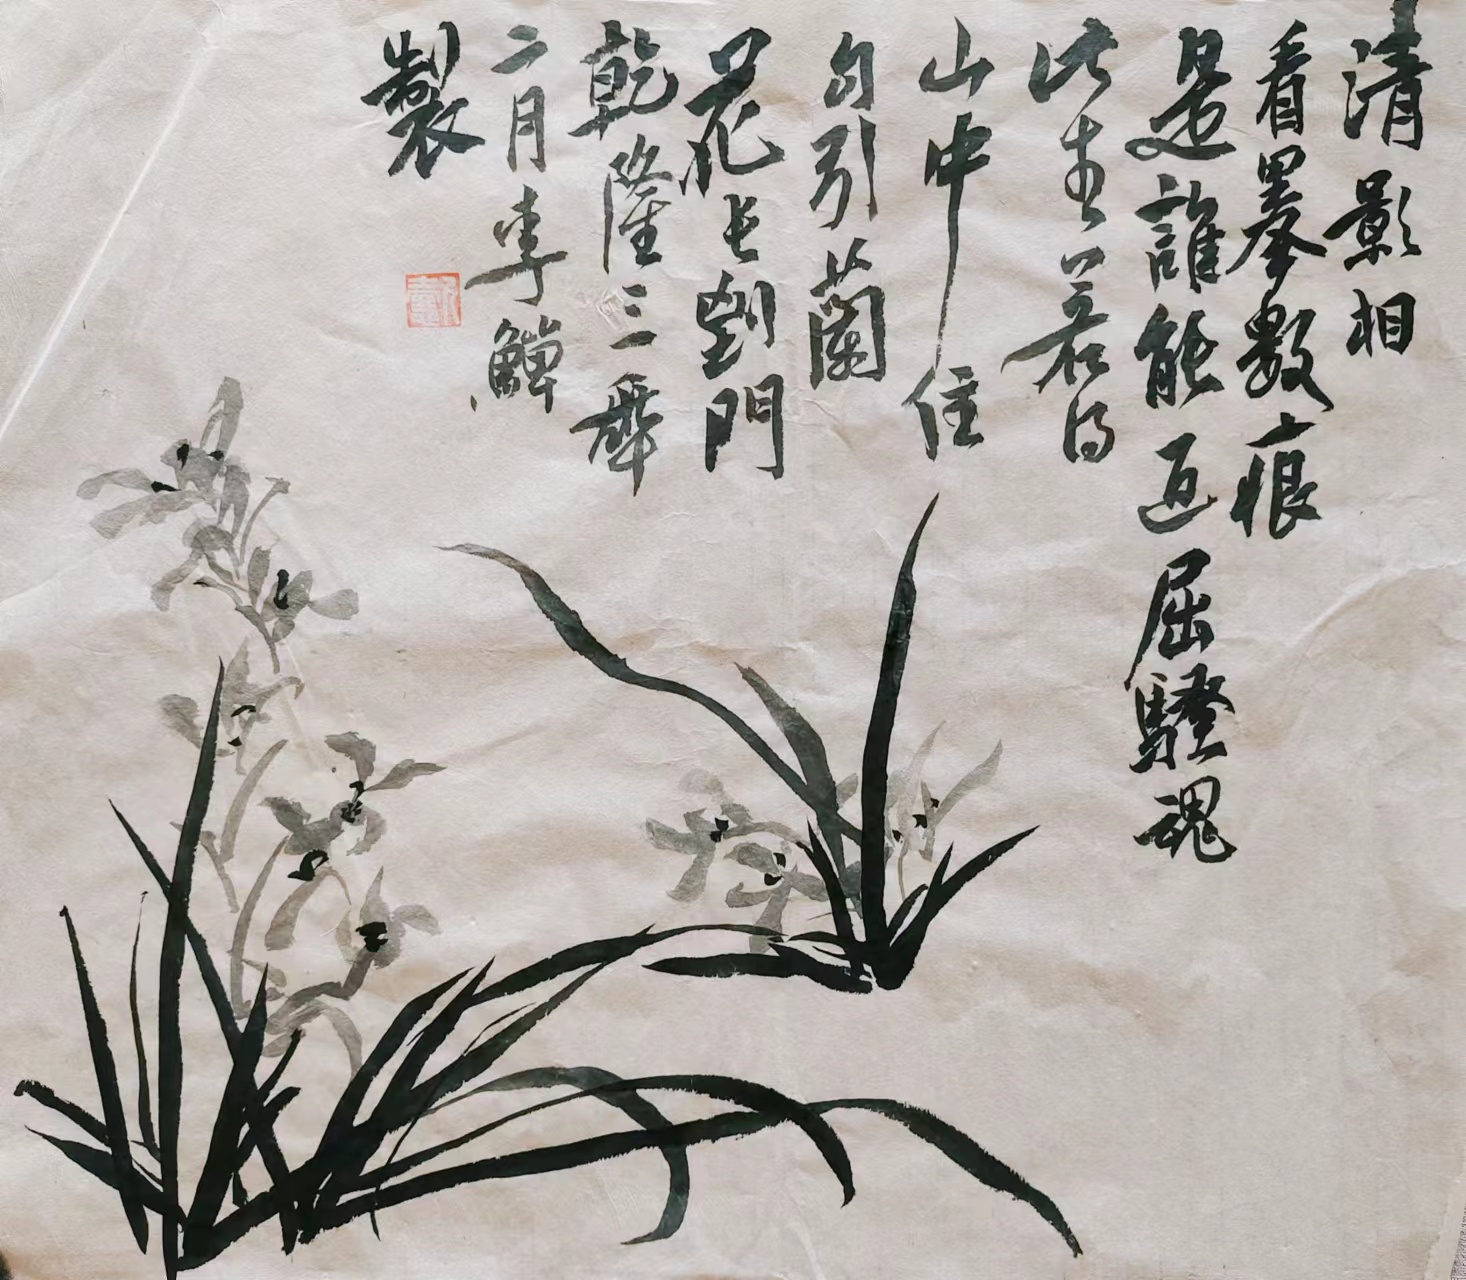 清影相
看墨數痕
是誰能返屈騷魂
此生若得
山中住
勾引蘭
花上到門
乾隆三年
二月李鱓
製